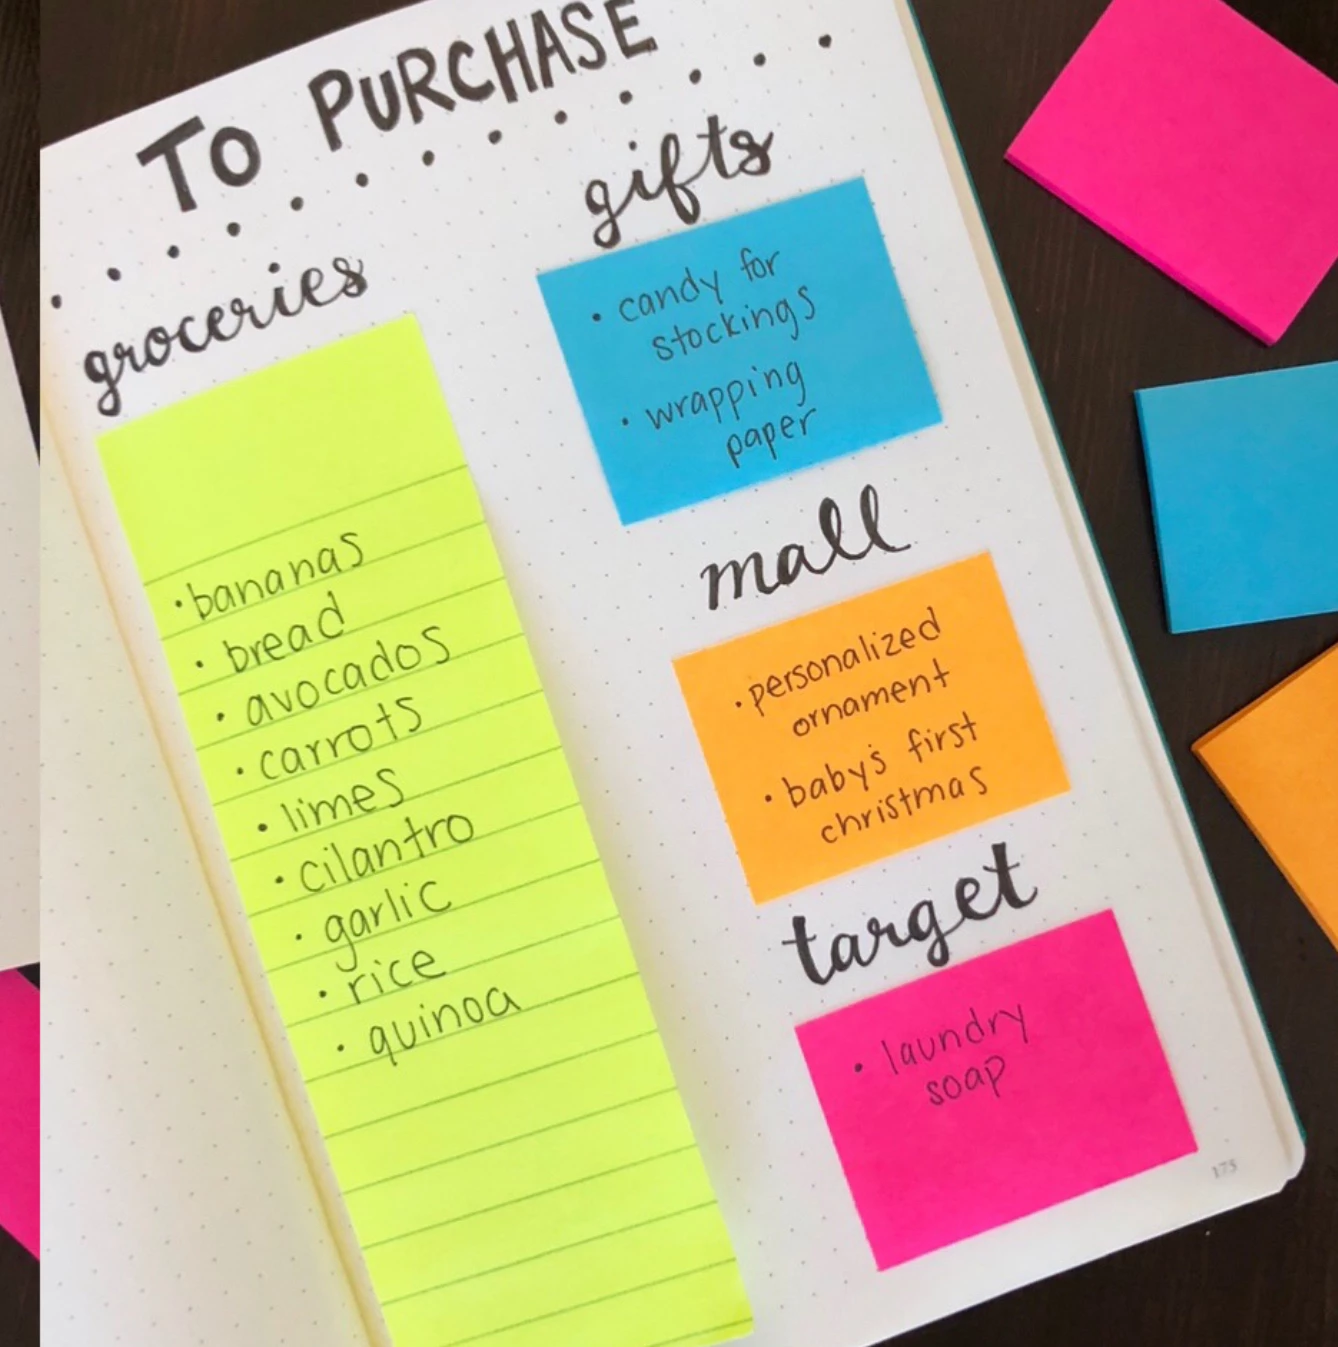 TO PURCHASE
groceries
• bananas
• bread
• avocados
• carrots
• limes
• cilantro
• garlic
• rice
• quinoa
gifts
• candy for
stockings
• wrapping
paper
mall
• personalized
ornament
• baby's first
christmas
target
• laundry
soap
175